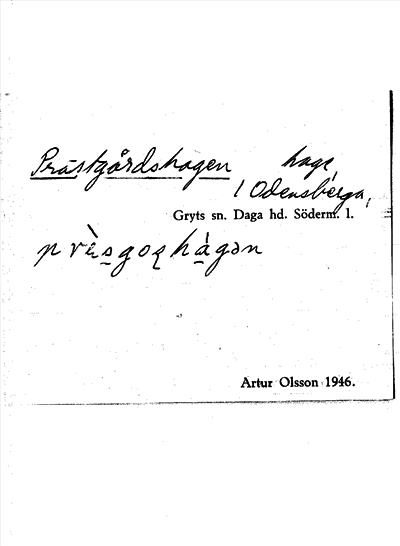 Prästgårdshagen hage,
1 Odensberga,
Gryts sn. Daga hd. Söderm. l.
Artur Olsson 1946.